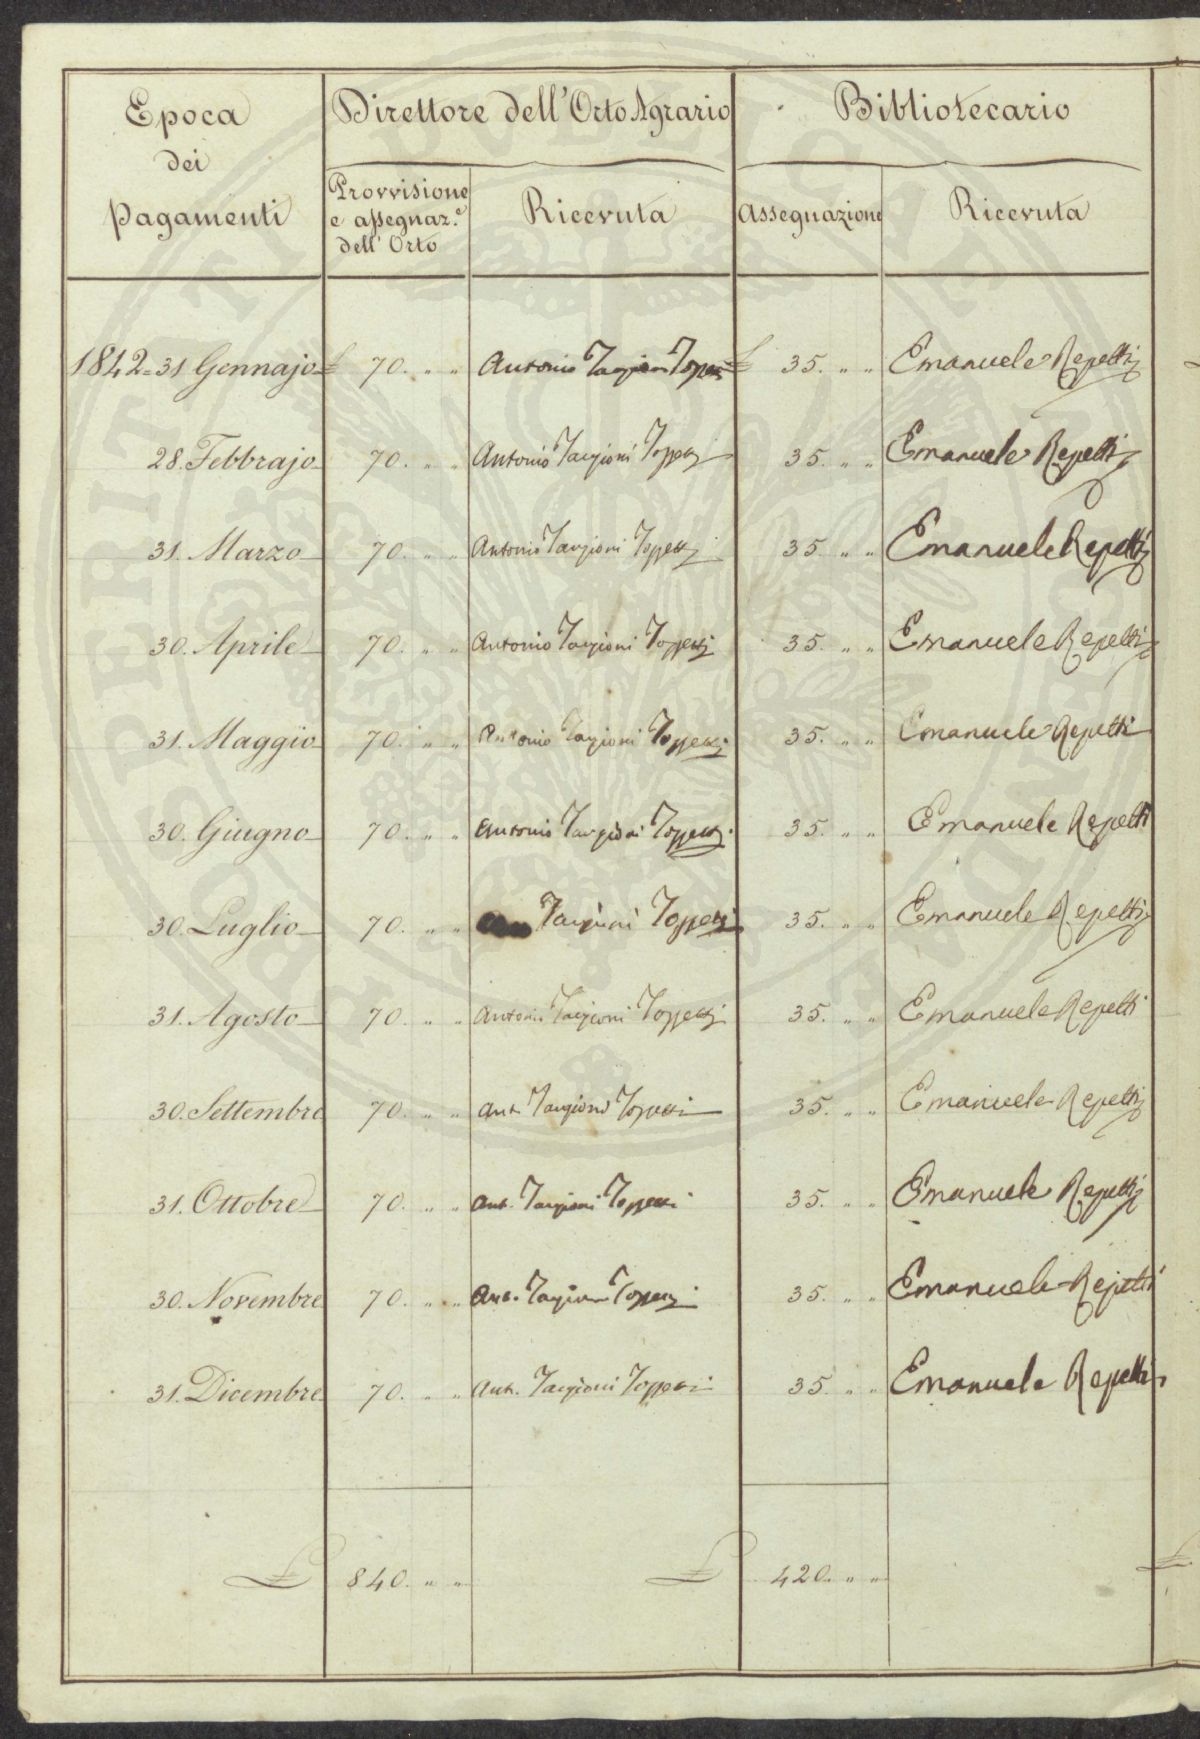 Epoca
dei
Pagamenti
Direttore dell'Orto Agrario
Bibliotecario
Provvisione
e assegnaz.e
dell' Orto
Ricevuta
Assegnazione
Ricevuta
1842=31 Gennajo £ 70. " " Antonio Targioni Tozzetti £ 35. " " Emanuele Repetti
28. Febbrajo 70. " " Antonio Targioni Tozzetti 35. " " Emanuele Repetti
31. Marzo 70. " " Antonio Targioni Tozzetti 35. " " Emanuele Repetti
30. Aprile 70. " " Antonio Targioni Tozzetti 35. " " Emanuele Repetti
31. Maggio 70. " " Antonio Targioni Tozzetti 35. " " Emanuele Repetti
30. Giugno 70. " " Antonio Targioni Tozzetti 35. " " Emanuele Repetti
30. Luglio 70. " " Targioni Tozzetti 35. " " Emanuele Repetti
31. Agosto 70. " " Antonio Targioni Tozzetti 35. " " Emanuele Repetti
30. Settembre 70. " " Ant. Targioni Tozzetti 35. " " Emanuele Repetti
31. Ottobre 70. " " Ant. Targioni Tozzetti 35. " " Emanuele Repetti
30. Novembre 70. " " Ant. Targioni Tozzetti 35. " " Emanuele Repetti
31. Dicembre 70. " " Ant. Targioni Tozzetti 35. " " Emanuele Repetti
£ 840. " " £ 420. " " £
PROSPERITATI PUBLICAE AUGENDAE